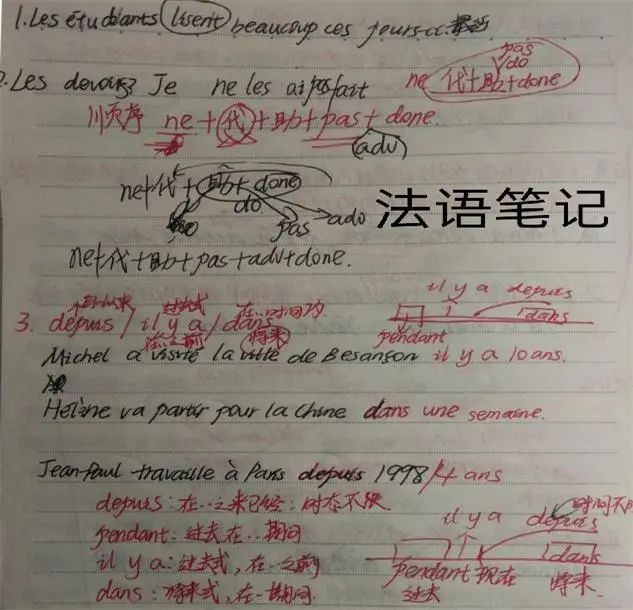 1. Les étudiants lisent beaucoup ces jours-ci.
2. Les devoirs Je ne les ai pas fait
pas
do
ne 代+助+done
顺序 ne+代+助+pas+done.
(adv)
ne+代+助+done
do pas adv
法语笔记
ne+代+助+pas+adv+done.
il y a depuis
过去式 在..时间
3. depuis/il y a/dans
在..之前 将来
dans
pendant
Michel a visité la ville de Besançon il y a 10 ans.
Hélène va partir pour la Chine dans une semaine.
Jean-Paul travaille à Paris depuis 1998/4 ans
depuis:在..之来已经:时态不限.
pendant:过去在..期间
il y a:过去式,在..之前
dans:将来式,在..期间.
il y a depuis
pendant 现在 dans
过去 将来.